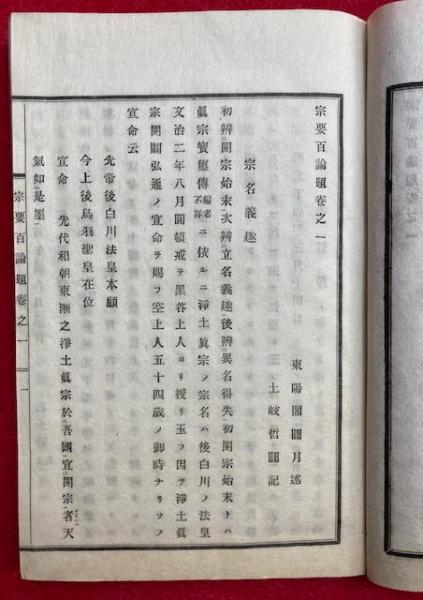 宗要百論題卷之一
東陽圓月述
土岐哲圓記
宗名義趣
初辨開宗始末次辨立名義趣後辨異名得失初開宗始末トハ
眞宗寶璽傳編者不詳ニ依ルニ淨土眞宗ノ宗名ハ後白川ノ法皇
文治二年八月圓頓戒ヲ黑谷上人ヨリ授リ玉フ因テ淨土眞
宗開闢弘通ノ宣命ヲ賜フ空上人五十四歲ノ御時ナリソノ
宣命云
先帝後白川法皇本願
今上後鳥羽聖皇在位
宣命 先代和朝東漸之淨土眞宗於吾國宜開宗者天
氣如是
宗要百論題卷之一
一